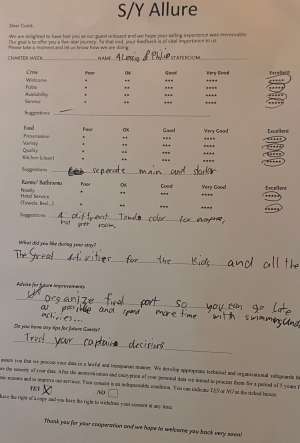 S/Y Allure
Dear Guest,
We are delighted to have had you as our guest onboard and we hope your sailing experience was memorable.
Our goal is to offer you a five-star journey. To that end, your feedback is of vital importance to us.
Please take a moment and let us know how we are doing.
CHARTER WEEK NAME STATEROOM
Crew Poor OK Good Very Good Excellent
Welcome * ** *** **** *****
Polite * ** *** **** *****
Availability * ** *** **** *****
Service * ** *** **** *****
Suggestions
Food Poor OK Good Very Good Excellent
Presentation * ** *** **** *****
Variety * ** *** **** *****
Quality * ** *** **** *****
Kitchen (chief) * ** *** **** *****
Suggestions seperate main and starter
Rooms/ Bathrooms Poor OK Good Very Good Excellent
Ready * ** *** **** *****
Hotel Service * ** *** **** *****
(Towels, Bed...)
Suggestions A different Towel color for everyone,
room.
What did you like during your stay?
The Great Activities for the kids and all the
Advice for future improvements
organize final part so you can go late
as possible and spend more time with swimming and
Do you have any tips for future Guests?
Trust your captains decisions
you that we process your data in a lawful and transparent manner. We develop appropriate technical and organizational safeguards
the security of your data. After the
reasons and to improve our services. Your consent is an indispensable condition. You can indicate YES or NO at the ticked boxes:
YES X NO
have the right of a copy and you have the right to withdraw your consent at any time.
Thank you for your cooperation and we hope to welcome you back very soon!